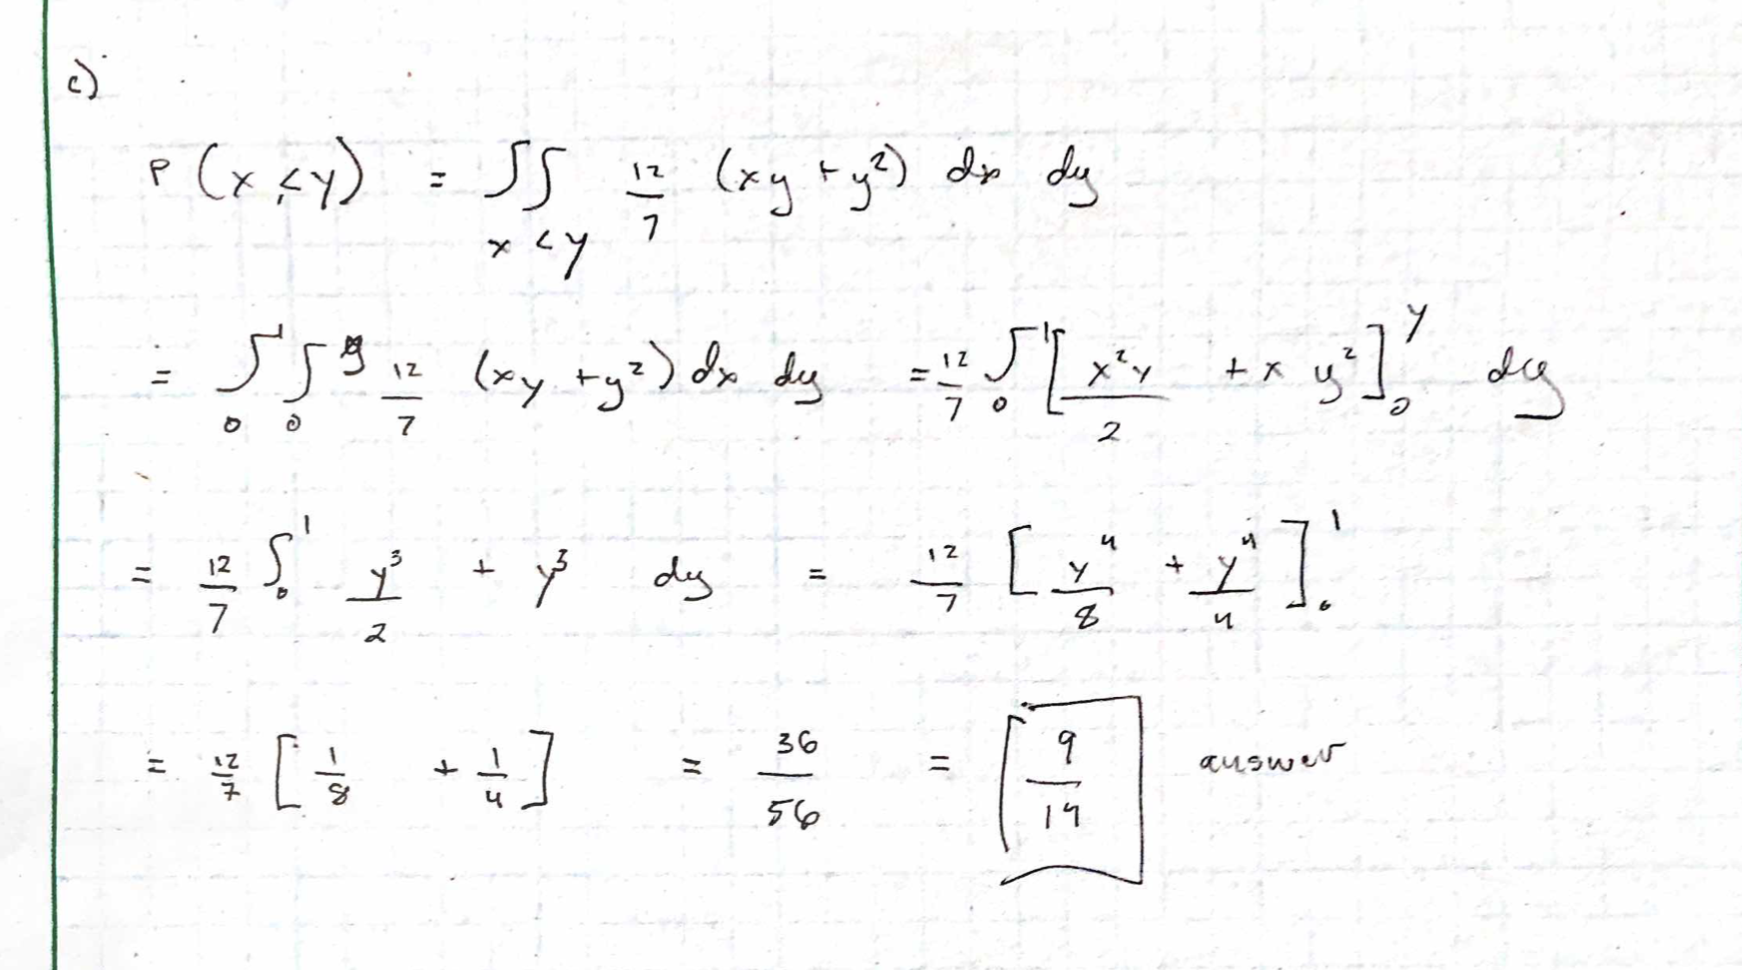 c)
P (x < y) = ∫∫ 12/7 (xy + y²) dx dy
x < y
= ∫₀¹ ∫₀^y 12/7 (xy + y²) dx dy = 12/7 ∫₀¹ [x²y/2 + x y²]₀^y dy
= 12/7 ∫₀¹ y³/2 + y³ dy = 12/7 [y⁴/8 + y⁴/4]₀¹
= 12/7 [1/8 + 1/4] = 36/56 = 9/14 answer